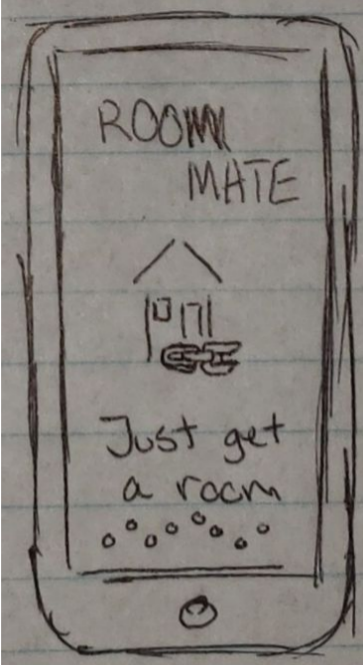 ROOM
MATE
Just get
a room